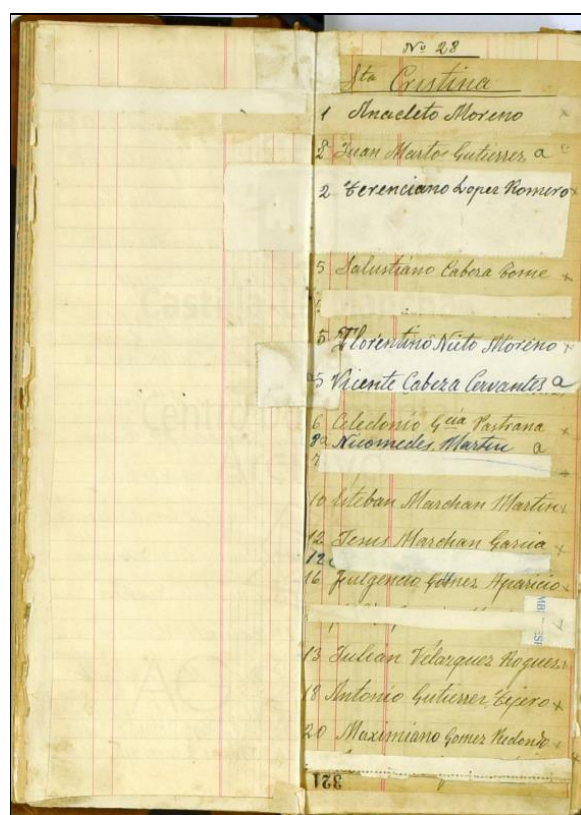 Nº 28
Sta Cristina
1 Anacleto Moreno x
2 Juan Martos Gutierrez a
2 Terenciano Lopez Romero x
5 Salustiano Cabeza Gome x
5 Florentino Nieto Moreno x
5 Vicente Cabeza Cervantes a
6 Celedonio Gcia Pastrana x
Nicomedes Martin a
7
10 Esteban Marchan Martin x
12 Jesus Marchan Garcia x
12
16 Fulgencio Gomez Aparicio x
13 Julian Velazquez Roguez
18 Antonio Gutierrez Tejero x
20 Maximiano Gomez Redondo x
321